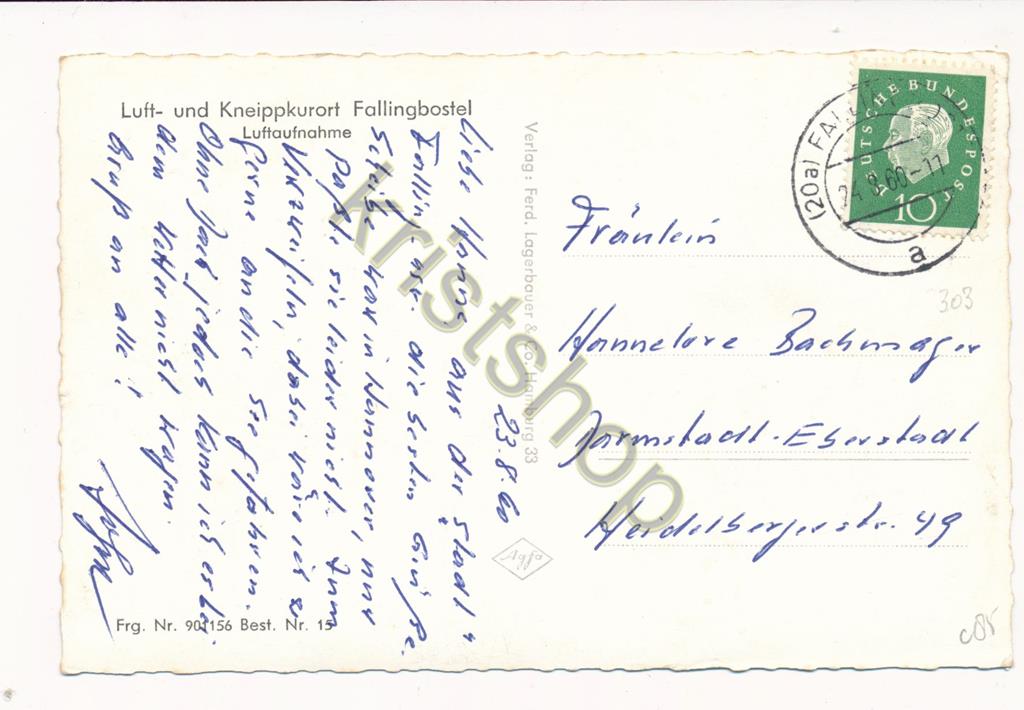 Luft- und Kneippkurort Fallingbostel
Luftaufnahme
23.8.60
Liebe Hanne, aus der "Stadt"
Falling. die besten Grüße.
Scheibe war in Hannover, nur
paßte sie leider nicht. Zum
Verzweifeln, dabei wäre ich so
gerne an die See gefahren.
Ohne jedoch kann ich es bei
dem Wetter nicht wagen.
Gruß an alle!
Frg. Nr. 901156 Best. Nr. 15
Verlag: Ferd. Lagerbauer & Co. Hamburg 33
Agfa
DEUTSCHE BUNDESPOST
10
(20a) FALLINGBOSTEL
24.8.60-11
a
Fräulein
Hannelore Bachmager
Darmstadt-Eberstadt
Heidelbergerstr. 49
303
c85
kristshop